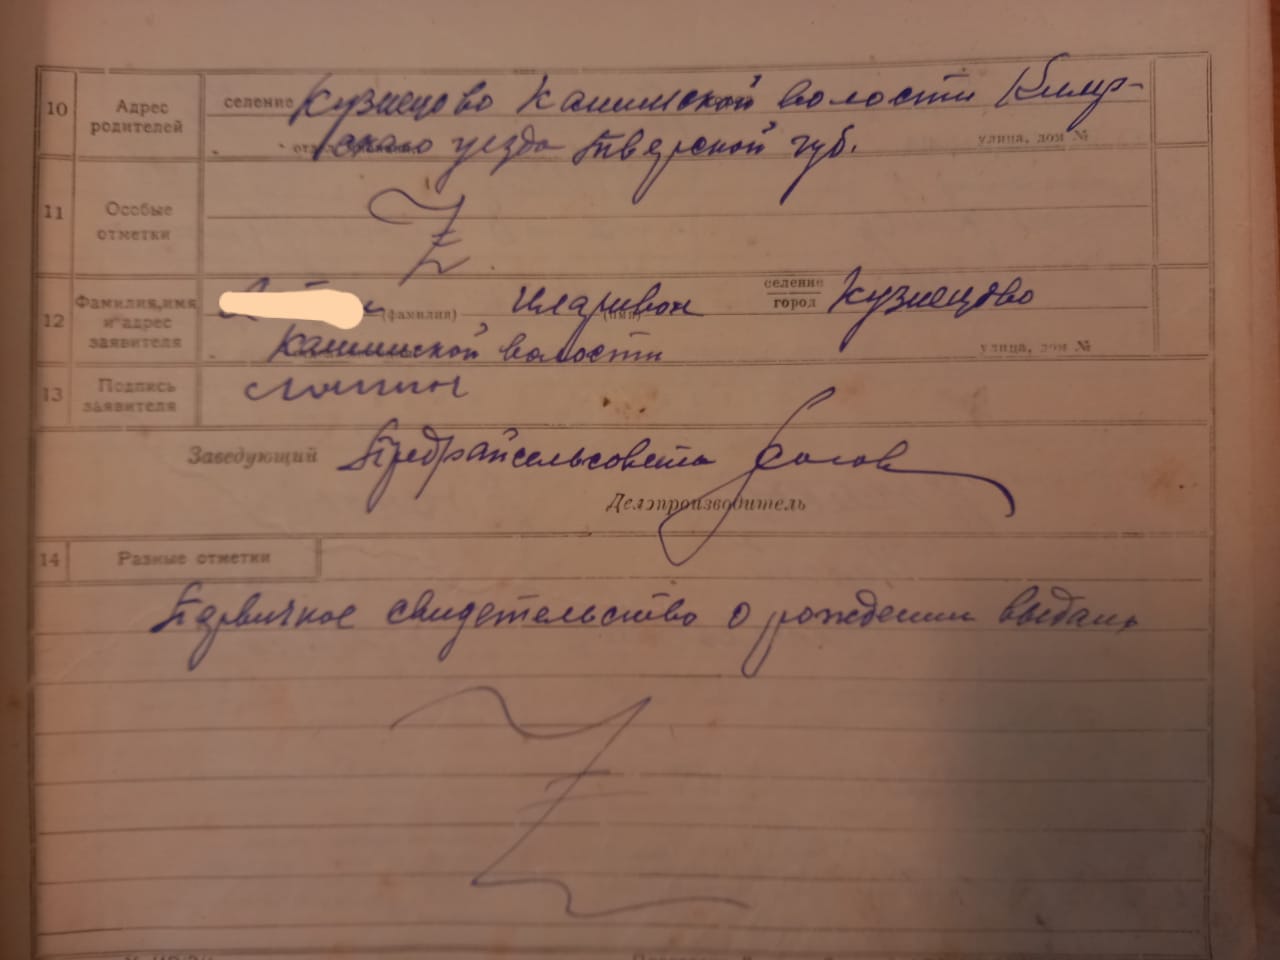 10 Адрес родителей селение Кузнецово Кашинской волости Кимр-
ского уезда Тверской губ. улица, дом №
11 Особые отметки Z
12 Фамилия, имя и адрес заявителя (фамилия) Иларион (имя) селение город Кузнецово
Кашинской волости улица, дом №
13 Подпись заявителя
Заведующий Предрайсельсовета
Делопроизводитель
14 Разные отметки
Первичное свидетельство о рождении выдано
Z